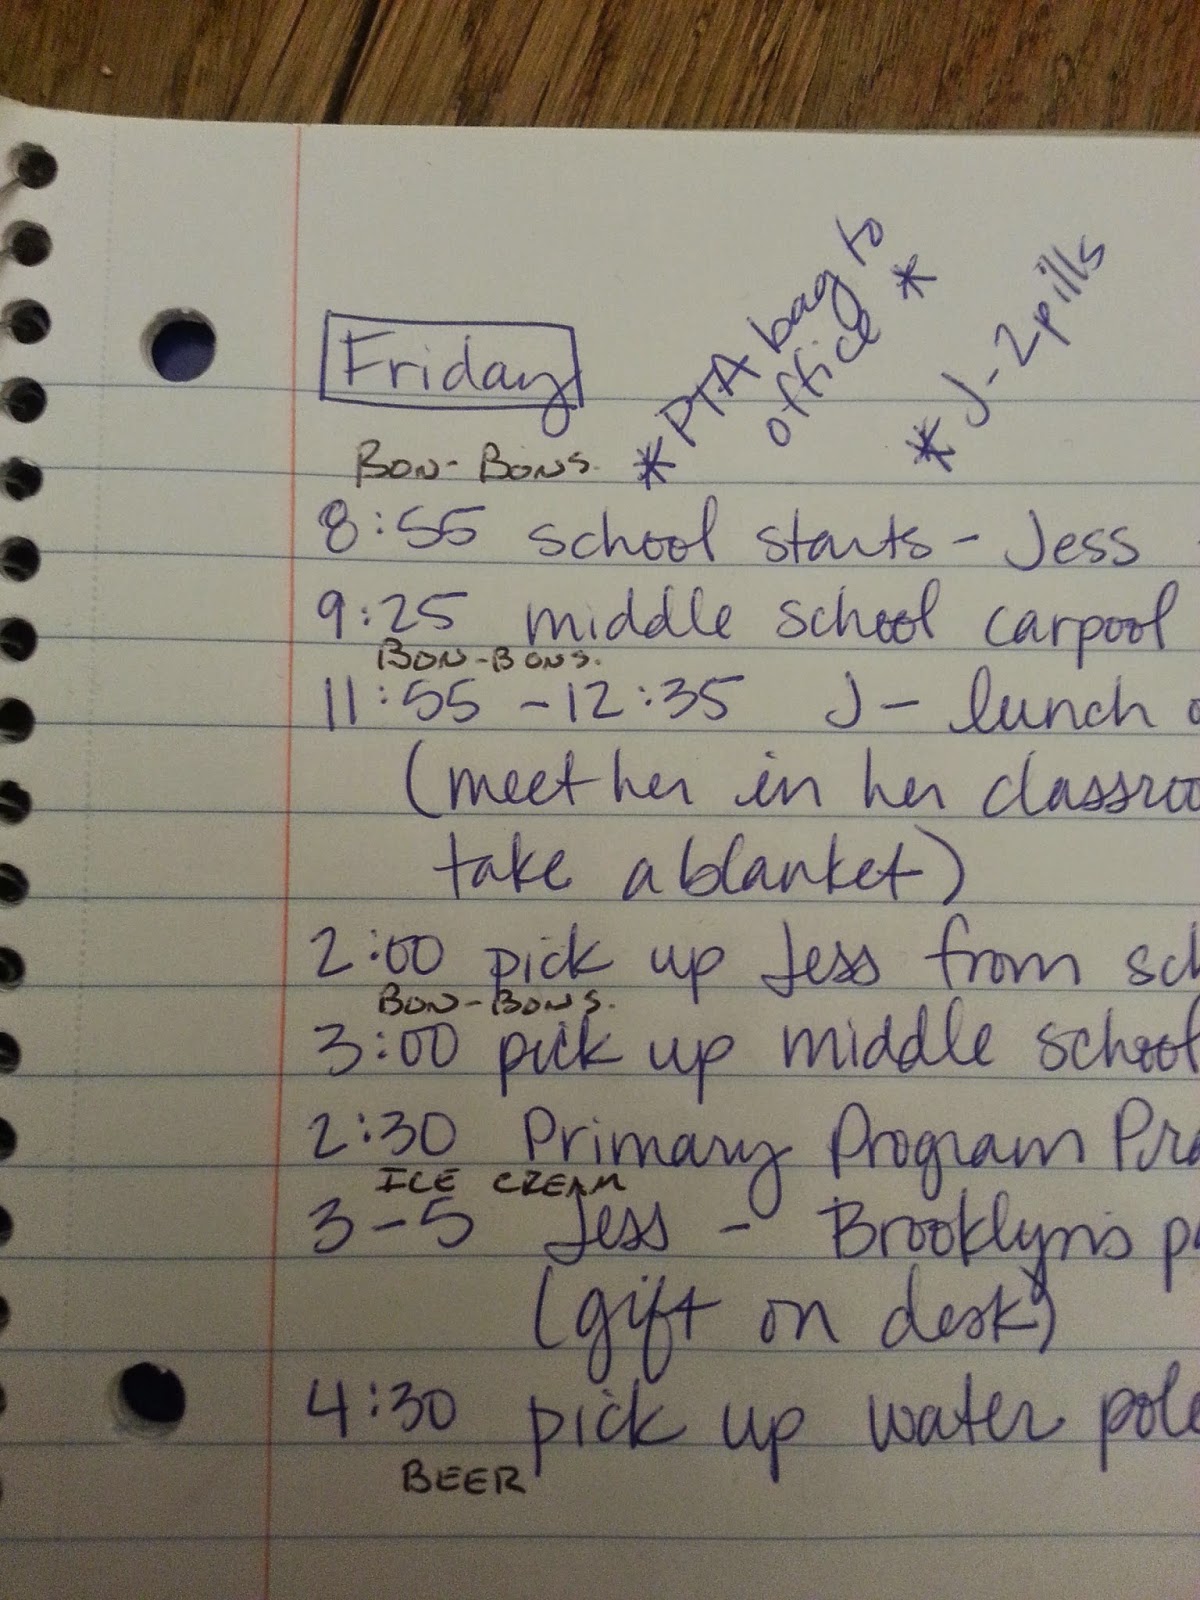 Friday
* PTA bag to
office *
* J - 2 pills
BON-BONS.
8:55 school starts - Jess -
9:25 middle school carpool
BON-BONS.
11:55 - 12:35 J - lunch
(meet her in her
take a blanket)
2:00 pick up Jess from
BON-BONS.
3:00 pick up middle school
2:30 Primary Program
ICE CREAM
3-5 Jess - Brooklyn's
(gift on desk)
4:30 pick up water
BEER